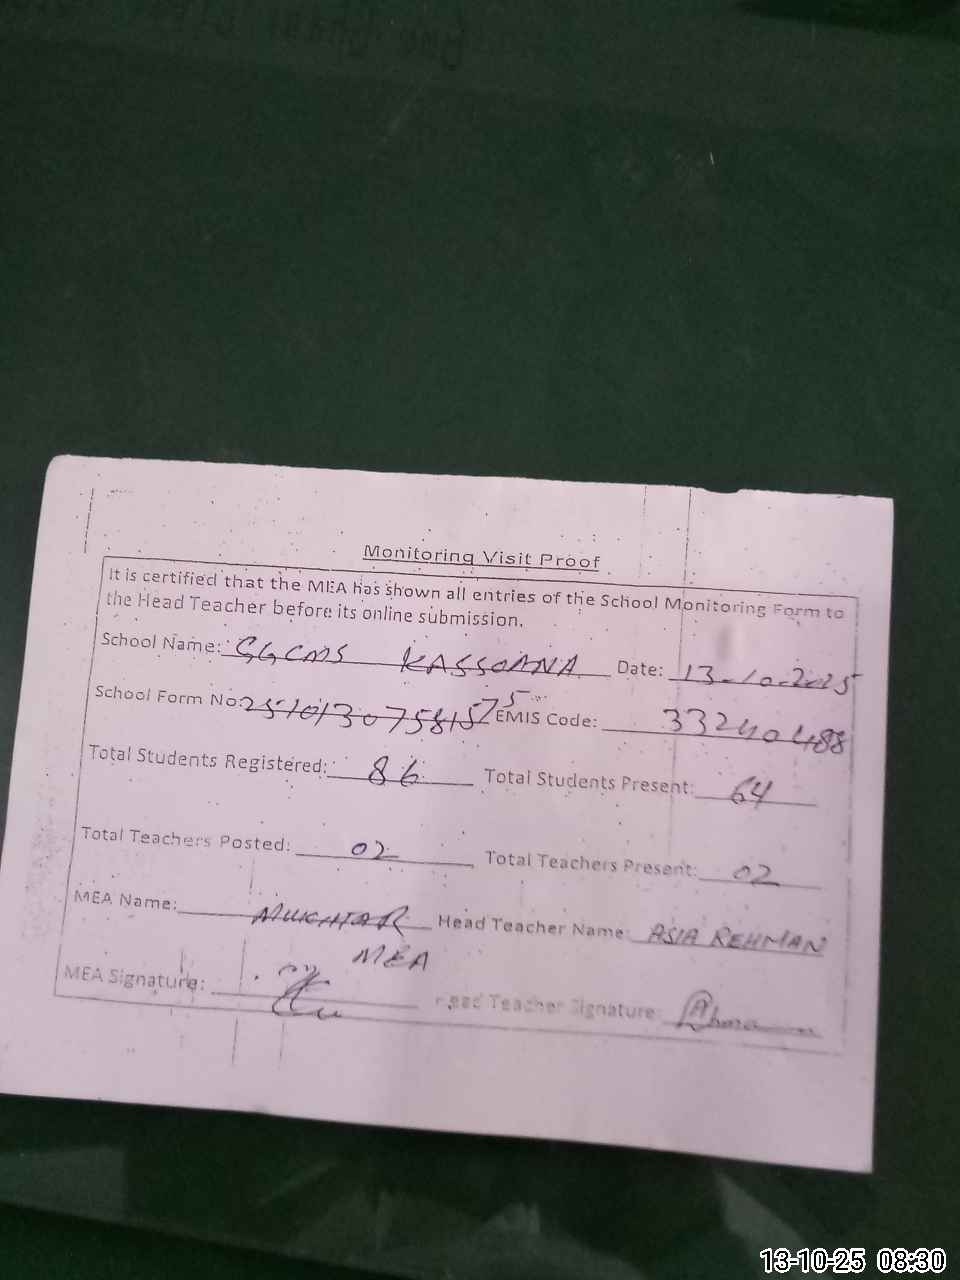 Monitoring Visit Proof
It is certified that the MEA has shown all entries of the School Monitoring Form to
the Head Teacher before its online submission.
School Name: GGCMS KASSOANA Date: 13-10-2025
School Form No: EMIS Code: 33240488
Total Students Registered: 86 Total Students Present: 64
Total Teachers Posted: 02 Total Teachers Present: 02
MEA Name: MUKHTAR Head Teacher Name: ASIA REHMAN
MEA
MEA Signature: Head Teacher Signature:
13-10-25 08:30